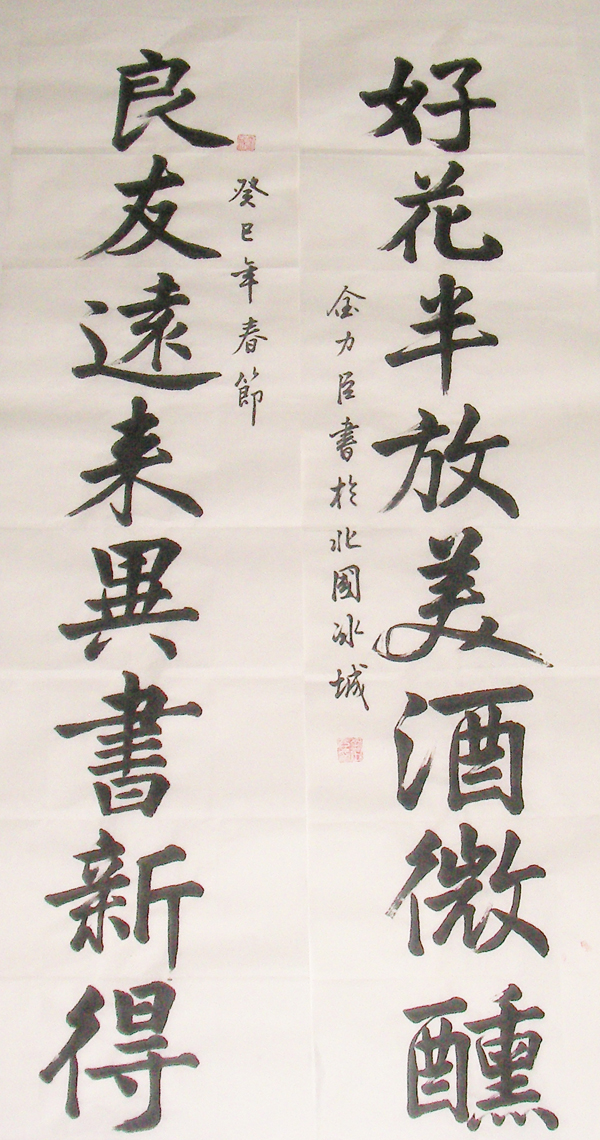 好花半放美酒微醺
金力臣書於北國冰城
癸巳年春節
良友遠来異書新得